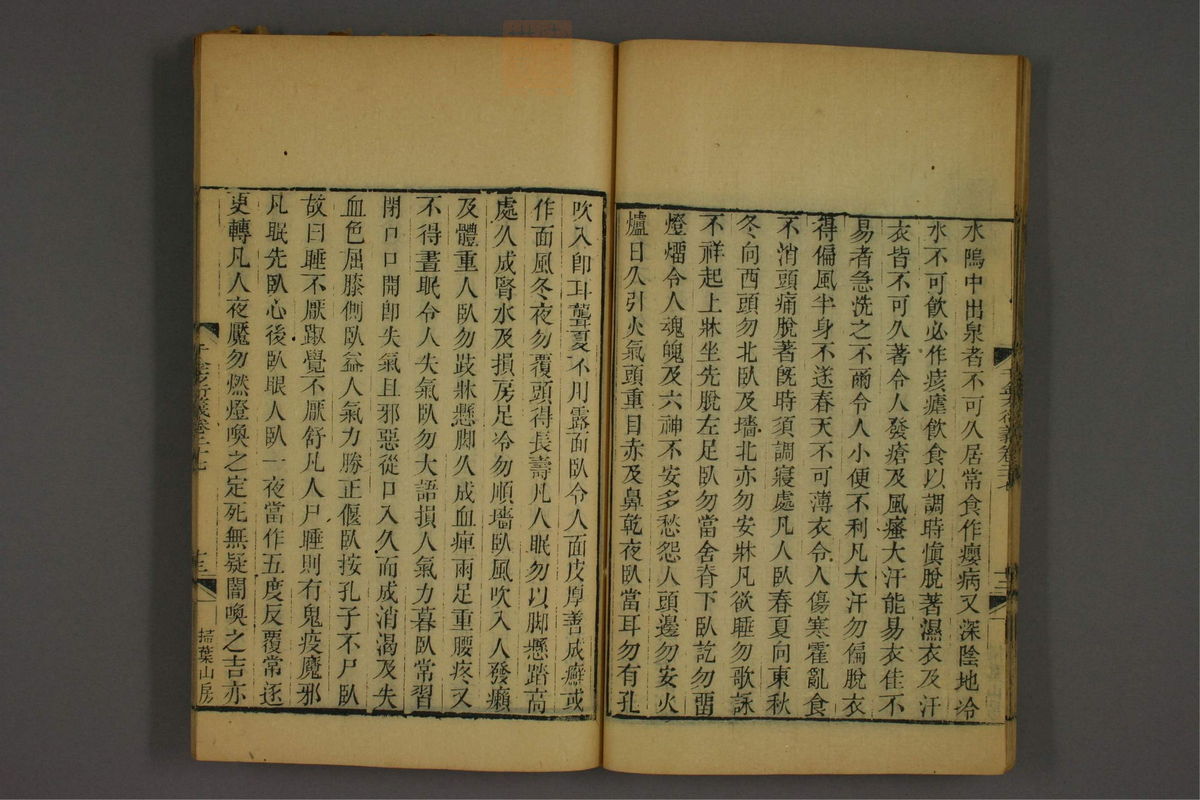 水鳴中出泉者不可久居常食作癭病又深陰地冷
水不可飲必作痎瘧飲食以調時愼脫著濕衣及汗
衣皆不可久著令人發瘡及風瘙大汗能易衣佳不
易者急洗之不爾令人小便不利凡大汗勿偏脫衣
得偏風半身不遂春天不可薄衣令人傷寒霍亂食
不消頭痛脫著既時須調寢處凡人臥春夏向東秋
冬向西頭勿北臥及墻北亦勿安牀凡欲睡勿歌詠
不祥起上牀坐先脫左足臥勿當舍脊下臥訖勿留
燈燭令人魂魄及六神不安多愁怨人頭邊勿安火
爐日久引火氣頭重目赤及鼻乾夜臥當耳勿有孔
吹入卽耳聾夏不用露面臥令人面皮厚善成癬或
作面風冬夜勿覆頭得長壽凡人眠勿以脚懸踏高
處久成腎水及損房足冷勿順墻臥風吹入人發癲
及體重人臥勿跂牀懸脚久成血痺兩足重腰疼又
不得晝眠令人失氣臥勿大語損人氣力暮臥常習
閉口口開卽失氣且邪惡從口入久而成消渴及失
血色屈膝側臥益人氣力勝正偃臥按孔子不尸臥
故曰睡不厭踧覺不厭舒凡人尸睡則有鬼疫魔邪
凡眠先臥心後臥眼人臥一夜當作五度反覆常逐
更轉凡人夜魘勿燃燈喚之定死無疑闇喚之吉亦
千金方衍義卷二十七
十三
掃葉山房